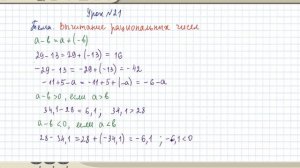 Урок №21
Тема. Вычитание рациональных чисел
a-b=a+(-b)
29-13=29+(-13)=16
-29-13=-29+(-13)=-42
-11+5-a=-11+5+(-a)=-6-a
a-b>0, если a>b
34,1-28=6,1; 34,1>28
a-b<0, если a<b
28-34,1=28+(-34,1)=-6,1; -6,1<0